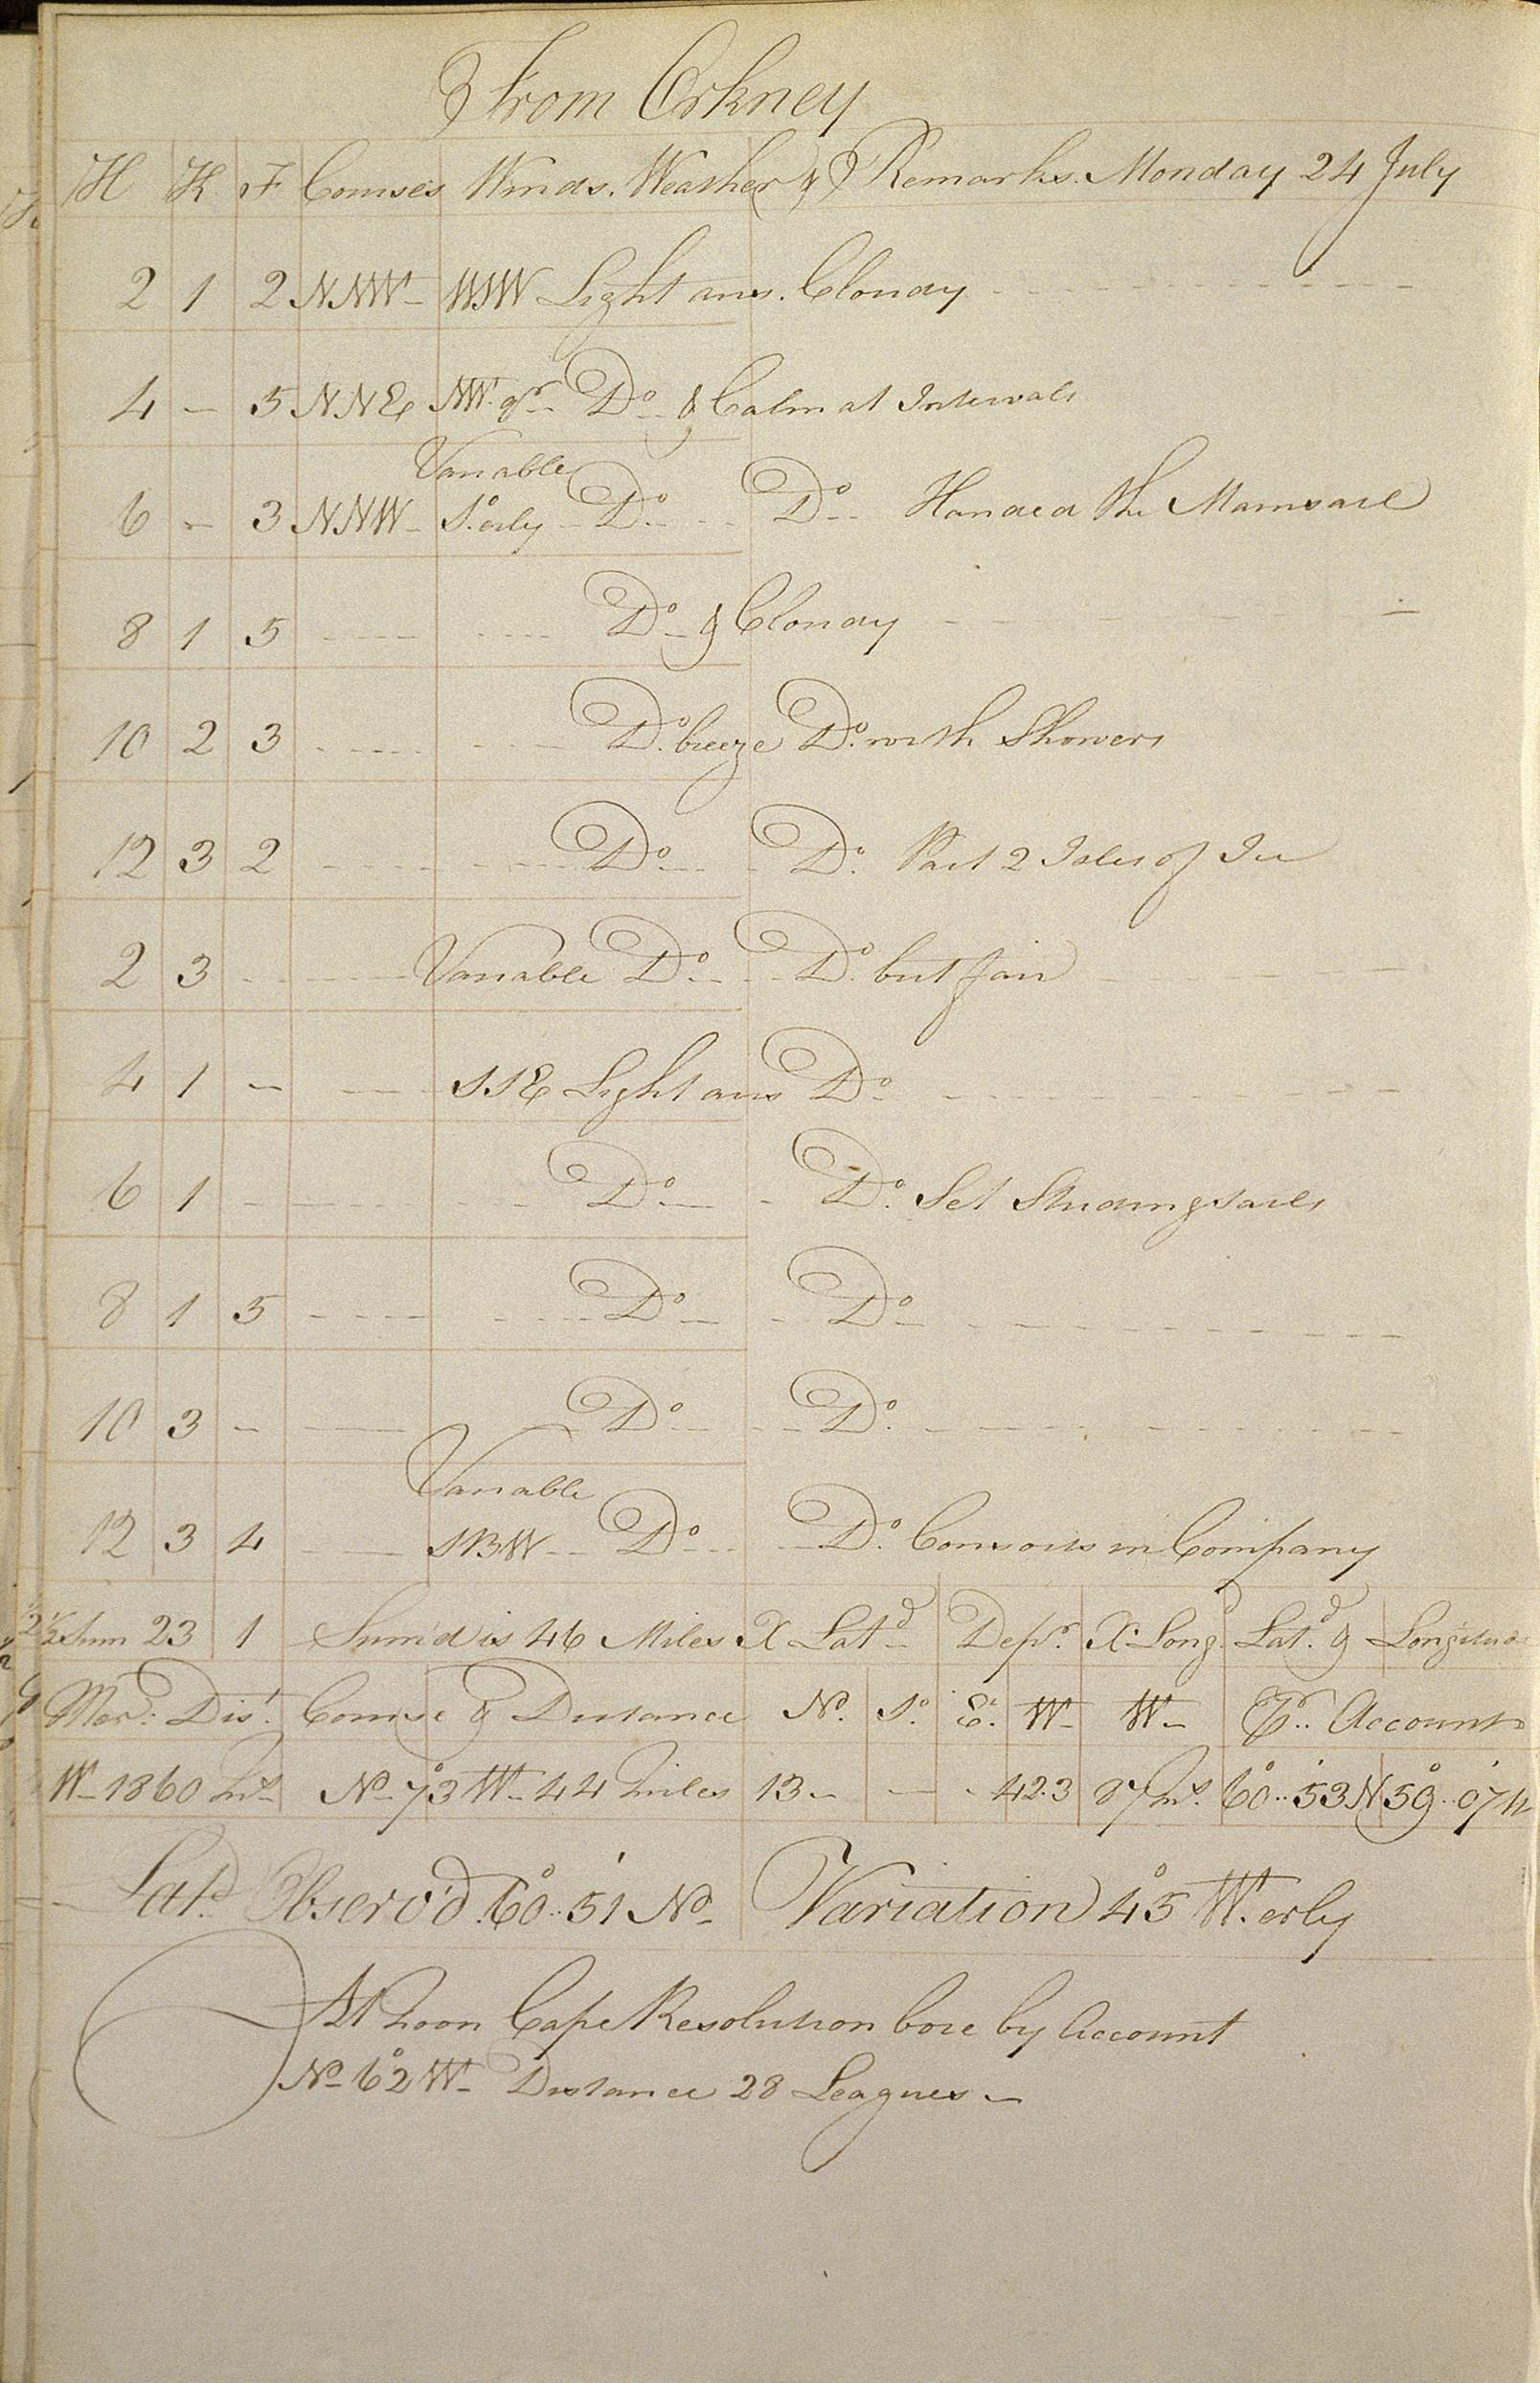 From Orkney
H K F Courses Winds. Weather & Remarks. Monday 24 July
2 1 2 NNW WSW Light airs. Cloudy
4 - 5 NNE NW. qr. Do & Calm at Intervals
Variable
6 - 3 NNW So.erly Do Do Handed the Mainsail
8 1 5 Do & Cloudy
10 2 3 Do. breeze Do. with Showers
12 3 2 Do Do. Past 2 Isles of Ice
2 3 - Variable Do Do. but fair
4 1 - SSE Light airs Do
6 1 - Do Do. Set Studingsails
8 1 5 Do Do
10 3 - Do Do.
Variable
12 3 4 SBW Do Do. Consorts in Company
Sum 23 1 Sum'd is 46 Miles X Latd Depr. X Long. Latd & Longitude
Mer: Dis: Course & Distance No. So. E. W W Pr. Account
W 1860 Ms No 73° W 44 Miles 13 - - - 42.3 87 Ms. 60°..53' N 59°..07' W
Latd. Observ'd. 60°..51' No Variation 45° W.erly
At Noon Cape Resolution bore by Account
No 62° W Distance 28 Leagues